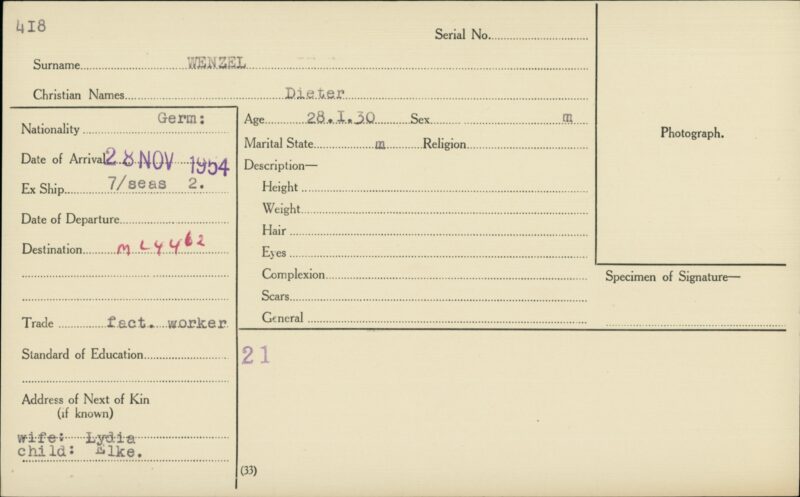 418
Serial No.
Surname WENZEL
Christian Names Dieter
Nationality Germ:
Date of Arrival 28 NOV 1954
Ex Ship 7/seas 2.
Date of Departure
Destination ML4462
Trade fact. worker
Standard of Education
Address of Next of Kin
(if known)
wife: Lydia
child: Elke.
Age 28.I.30 Sex m
Marital State m Religion
Description—
Height
Weight
Hair
Eyes
Complexion
Scars
General
21
(33)
Photograph.
Specimen of Signature—